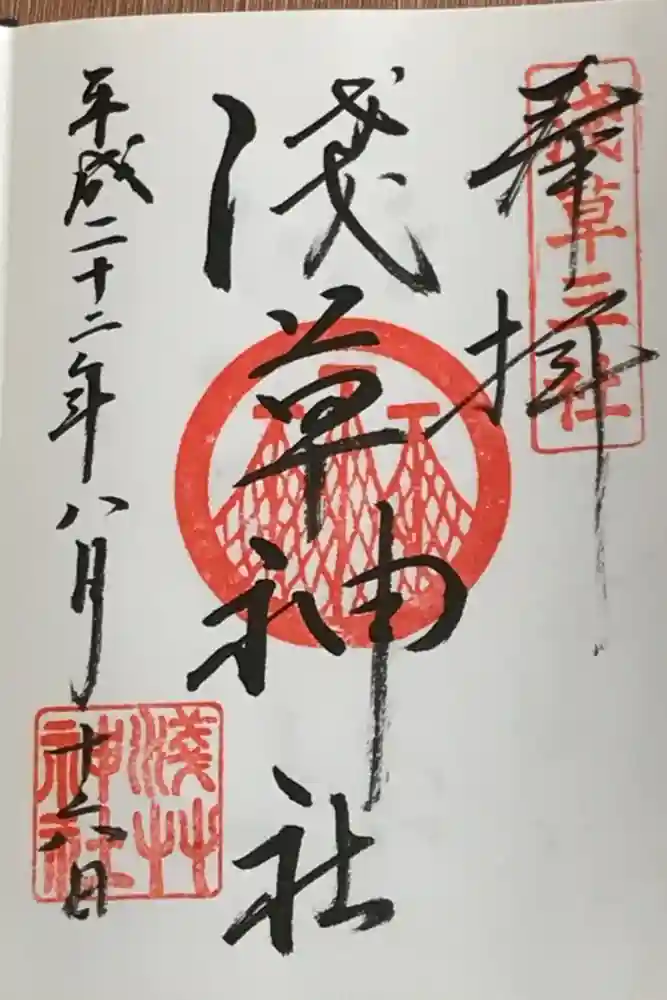 奉拝
淺草三社
淺草神社
平成二十二年八月十六日
淺艸
神社